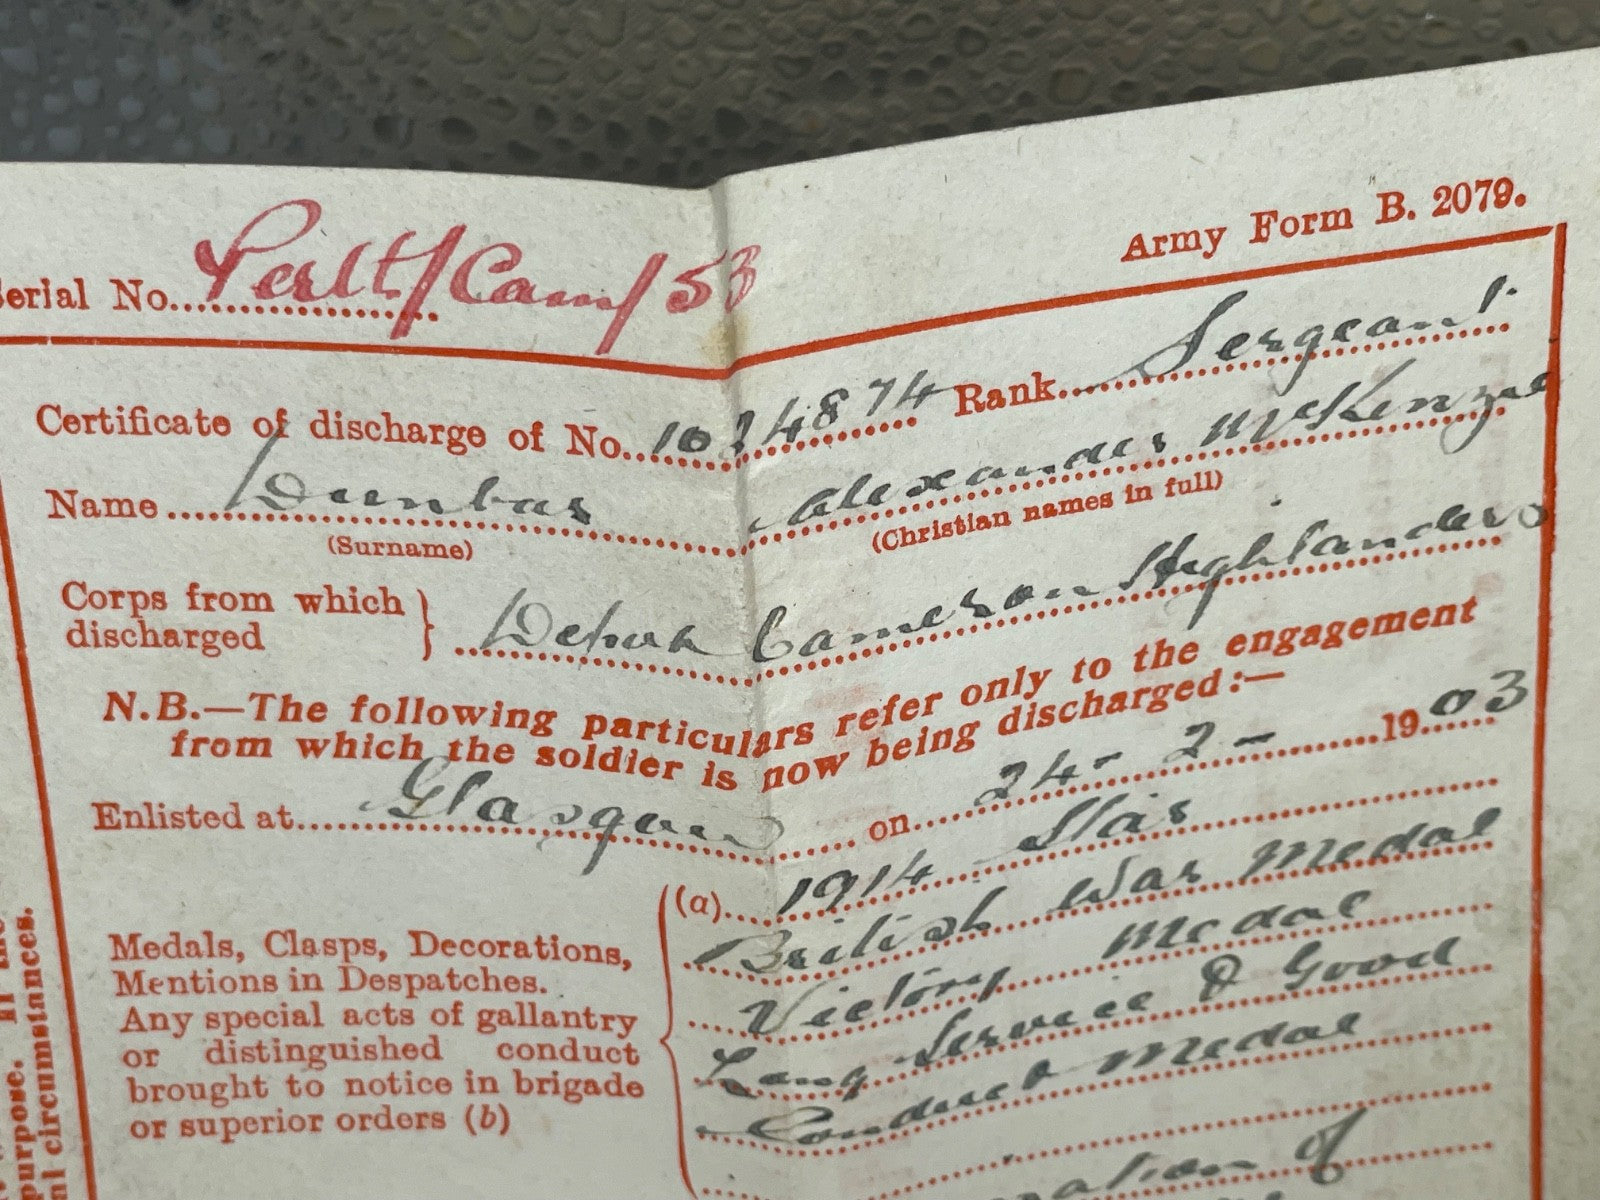 Army Form B. 2079.
Serial No. Perth/Cam/53
Certificate of discharge of No. 1024874 Rank Sergeant.
Name Dunbar Alexander McKenzie
(Surname) (Christian names in full)
Corps from which discharged } Depot Cameron Highlanders
N.B.—The following particulars refer only to the engagement
from which the soldier is now being discharged:—
Enlisted at Glasgow on 24-2-1903
Medals, Clasps, Decorations,
Mentions in Despatches.
Any special acts of gallantry
or distinguished conduct
brought to notice in brigade
or superior orders (b)
(a) 1914 Star
British War Medal
Victory Medal
Long Service & Good
Conduct Medal
of
purpose. If the
al circumstances.